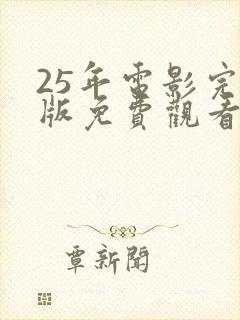 25年電影完
版免費觀看
覃新聞